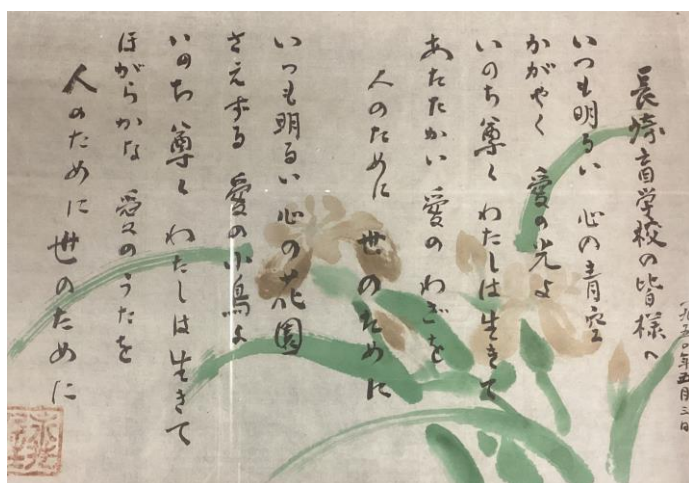 長崎盲学校の皆様へ
いつも明るい 心の青空
かがやく 愛の光よ
いのち尊く わたしは生きて
あたたかい 愛の わざを
人のために 世のために
いつも明るい心の花園
さえずる 愛の小鳥よ
いのち尊く わたしは生きて
ほがらかな 愛のうたを
人のために 世のために